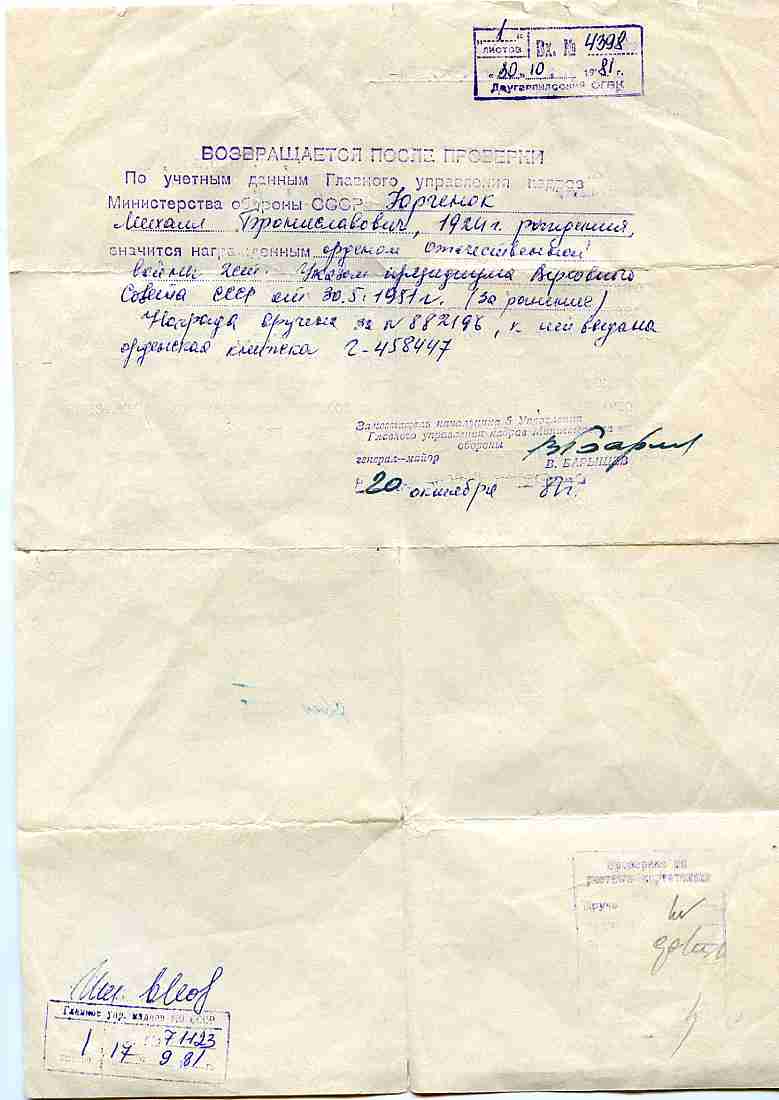 "1" листов Вх. № 4398
"30" 10 1981 г.
Даугавпилсский ОГВК
ВОЗВРАЩАЕТСЯ ПОСЛЕ ПРОВЕРКИ
По учетным данным Главного управления кадров
Министерства обороны СССР Юргенок
Михаил Брониславович, 1924 г. рождения,
значится награжденным орденом Отечественной
войны 2 ст. Указом президиума Верховного
Совета СССР от 30.5.1951 г. (За ранение)
Награда вручена за N 882196, к ней выдана
орденская книжка Г-458447
Заместитель начальника 5 Управления
Главного управления кадров Министерства
обороны
генерал-майор В. БАРЫШЕВ
20 октября 81 г.
Проверено по
учетным картотекам
Вруче
Главное упр. кадров МО СССР
71123
1 17 9 81 г.